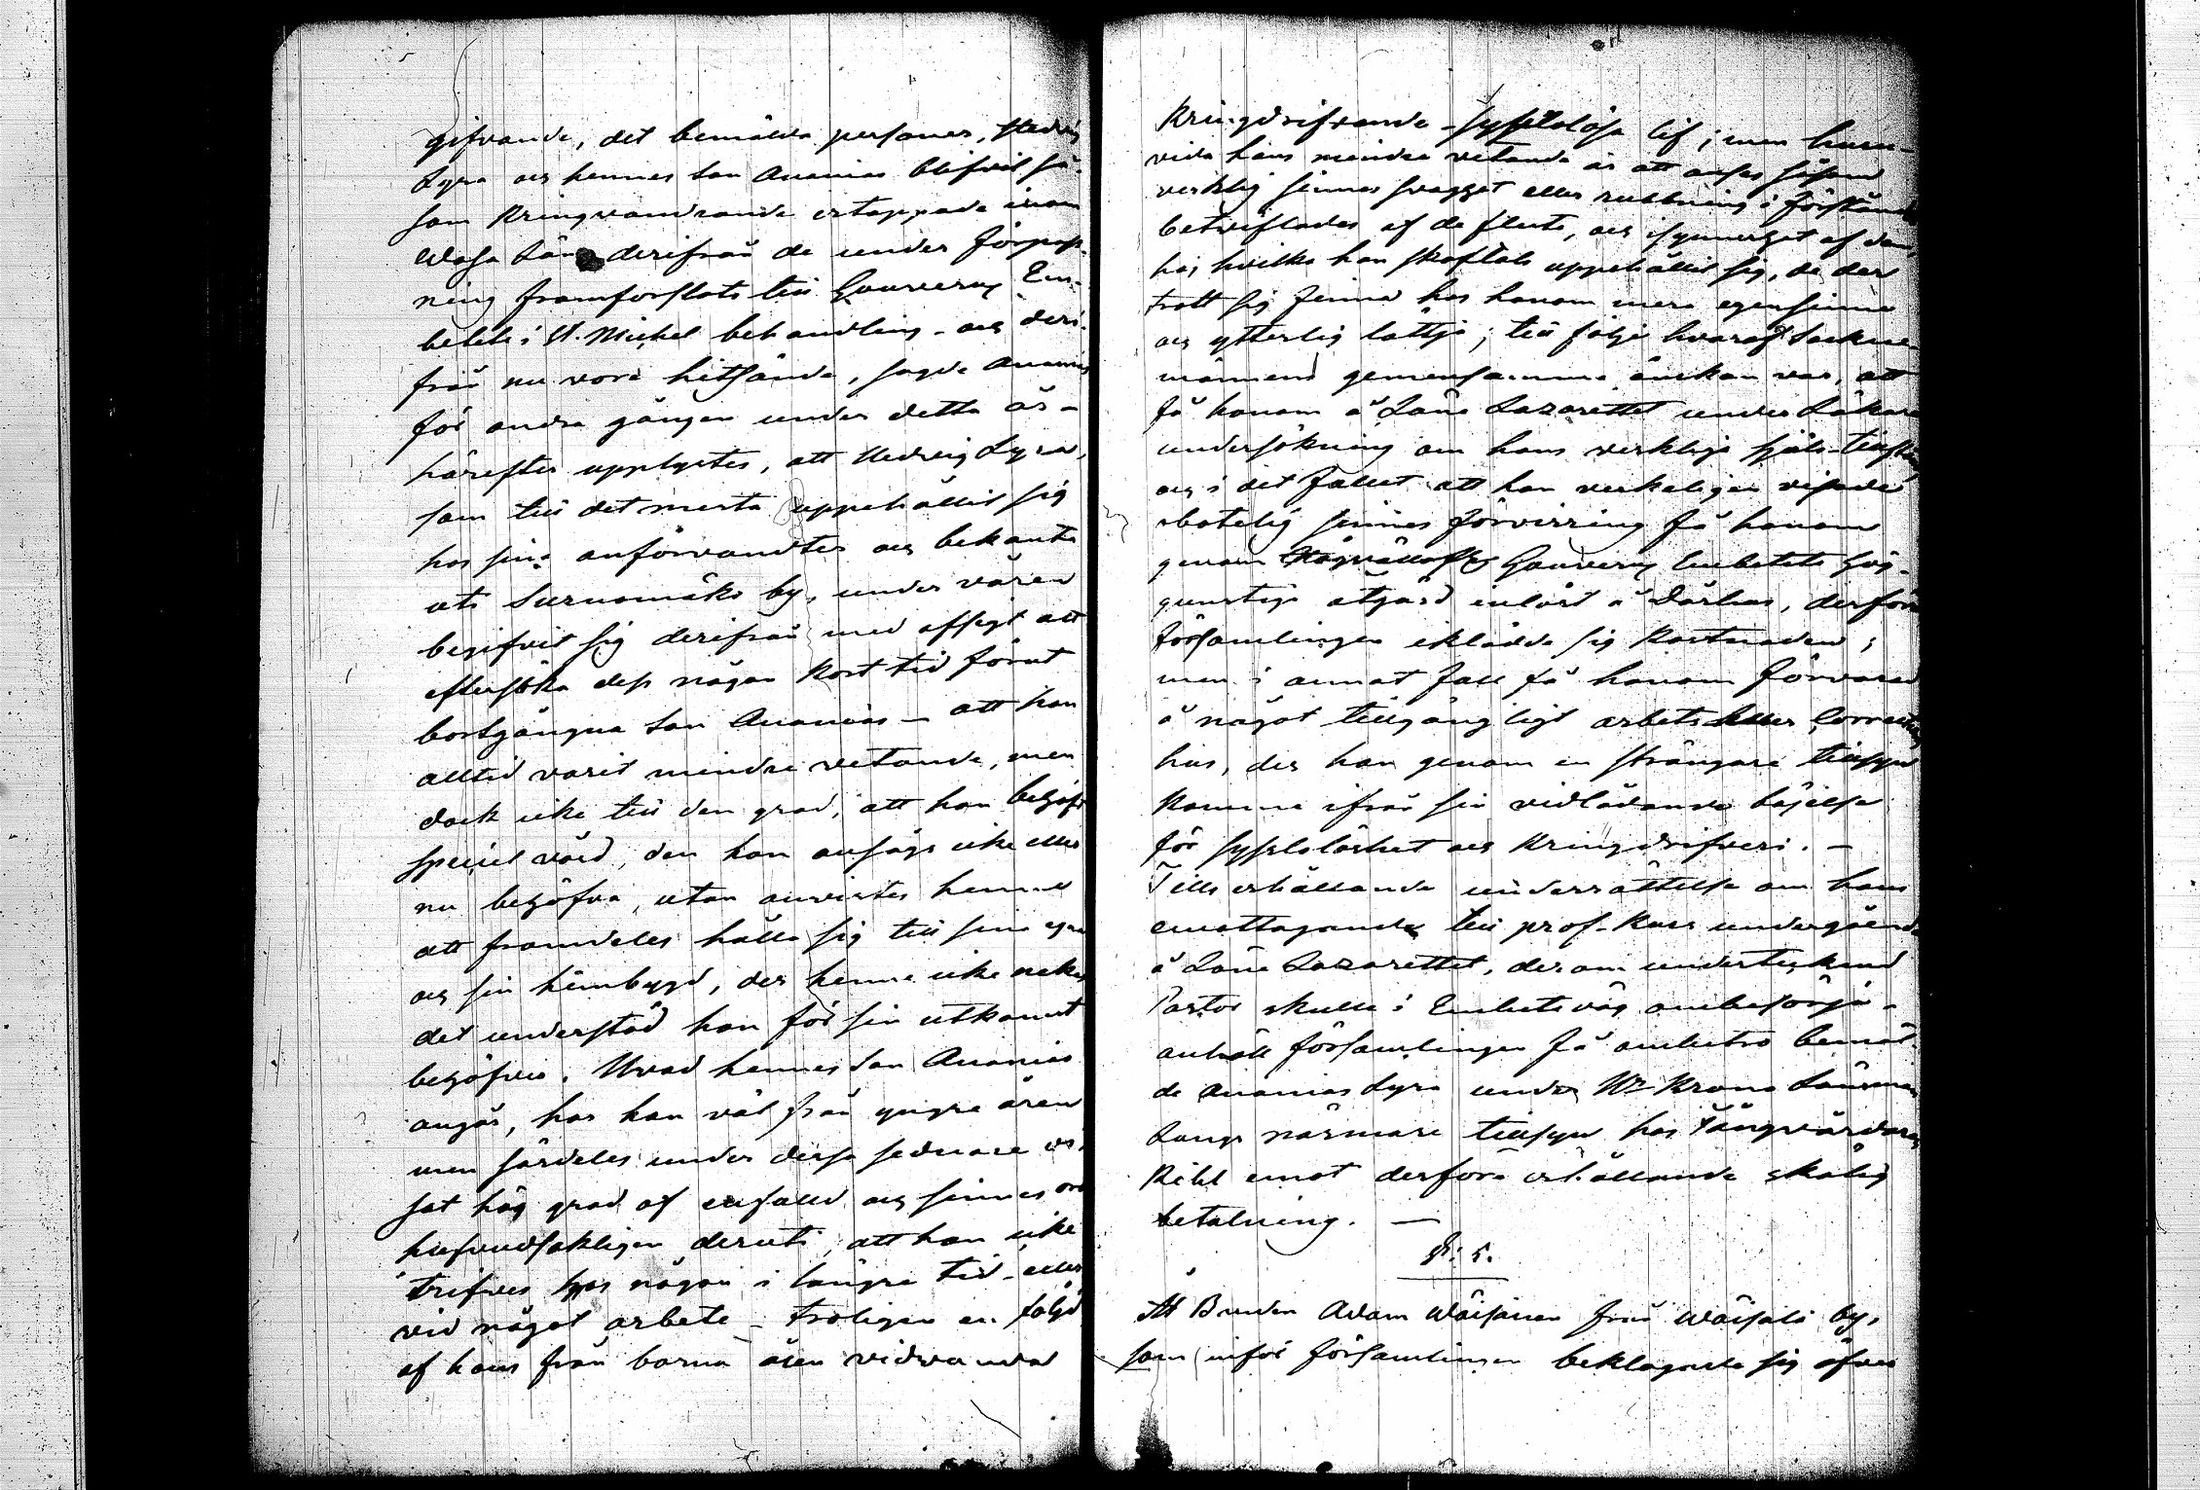 gifvande, det bemälda personer, Hedvig
Lyra och hennes son Ananias blifvit så-
som kringvandrande ertappade inom
Wasa Län derifrån de under förpass-
ning framforslats till Gouvern Em-
betets i St. Michel behandling - och deri-
från nu vore hitsände, sagde Ananias
för andra gången under detta år -
härefter upplystes, att Hedvig Lyra,
som till det mesta uppehållit sig
hos sina anförvandter och bekanta
uti Surnamäki by, under våren
begifvit sig derifrån med afsigt att
eftersöka dess någon kort tid förut
bortgångna son Ananias - att hon
alltid varit mindre vetande, men
dock icke till den grad, att hon behöft
speciel vård, den hon ansågs icke eller
nu behöfva, utan anvistes henne
att framdeles hålla sig till sina egna
och sin hembygd, der henne icke nekas
det understöd hon för sin utkomst
behöfver. Hvad hennes son Ananias
angår, har han väl från yngre åren
men särdeles under dessa sednare vi-
sat hög grad af enfald och sinnes oro
hufvudsakligen deruti, att han icke
trifves hos någon i längre tid - eller
vid något arbete - troligen en följd
af hans från barna åren vidvanda
kringdrifvande - sysslolösa lif; men huru-
vida hans mindre vetande är att anses såsom
verklig sinnes svaghet eller rubbning i förstånd
betviflades af de fleste, och isynnerhet af dem,
hos hvilka han skaftals uppehållit sig, de der
trott sig finna hos honom mera egensinne
och ytterlig lättja; till följe hvaraf Sockne-
männens gemensamma önskan var, att
få honom å Läns Lazarettet under Läkare
undersökning om hans verkliga själs-tillstånd
och i det fallet att han verkeligen visade
obotelig sinnes förvirring få honom
genom Gouvern Embetets hög-
gunstiga åtgärd inlöst å Dårhus, derföre
församlingen iklädde sig kostnaden;
men i annat fall få honom förvarad
å något tillgängligt arbets eller Corrections
hus, der han genom en strängare tillsyn
komme ifrån sin vidlådande böjelse
för sysslolöshet och kringdrifveri. -
Tills erhållande underrättelse om hans
emottagande till prof-kurs undergående
å Läns Lazarettet, derom undertecknad
Pastor skulle i Embetsväg ombesörja -
anhöll församlingen få anbetro bemäl-
de Ananias Lyra under Hr Krono Länsman
Langs närmare tillsyn hos Fångvårdaren
Kihl emot derföre erhållande skälig
betalning. -
§: 5.
At Bonden Adam Wäisänen från Wäisälä by,
som inför församlingen beklagade sig öfver